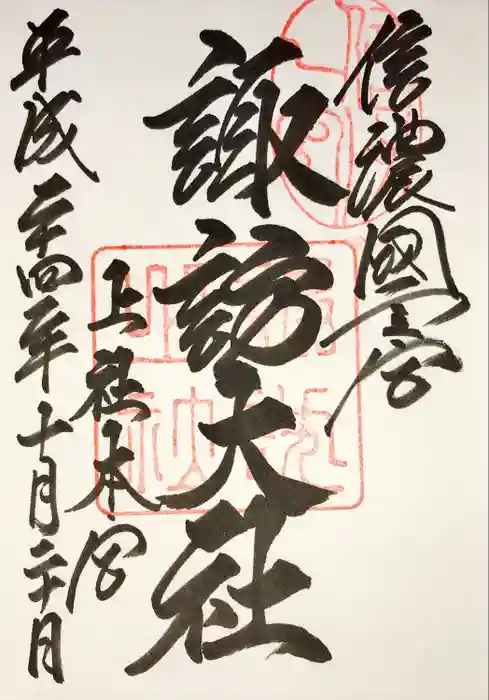 信濃國一宮
諏訪大社
上社本宮
平成二十四年十一月二十日